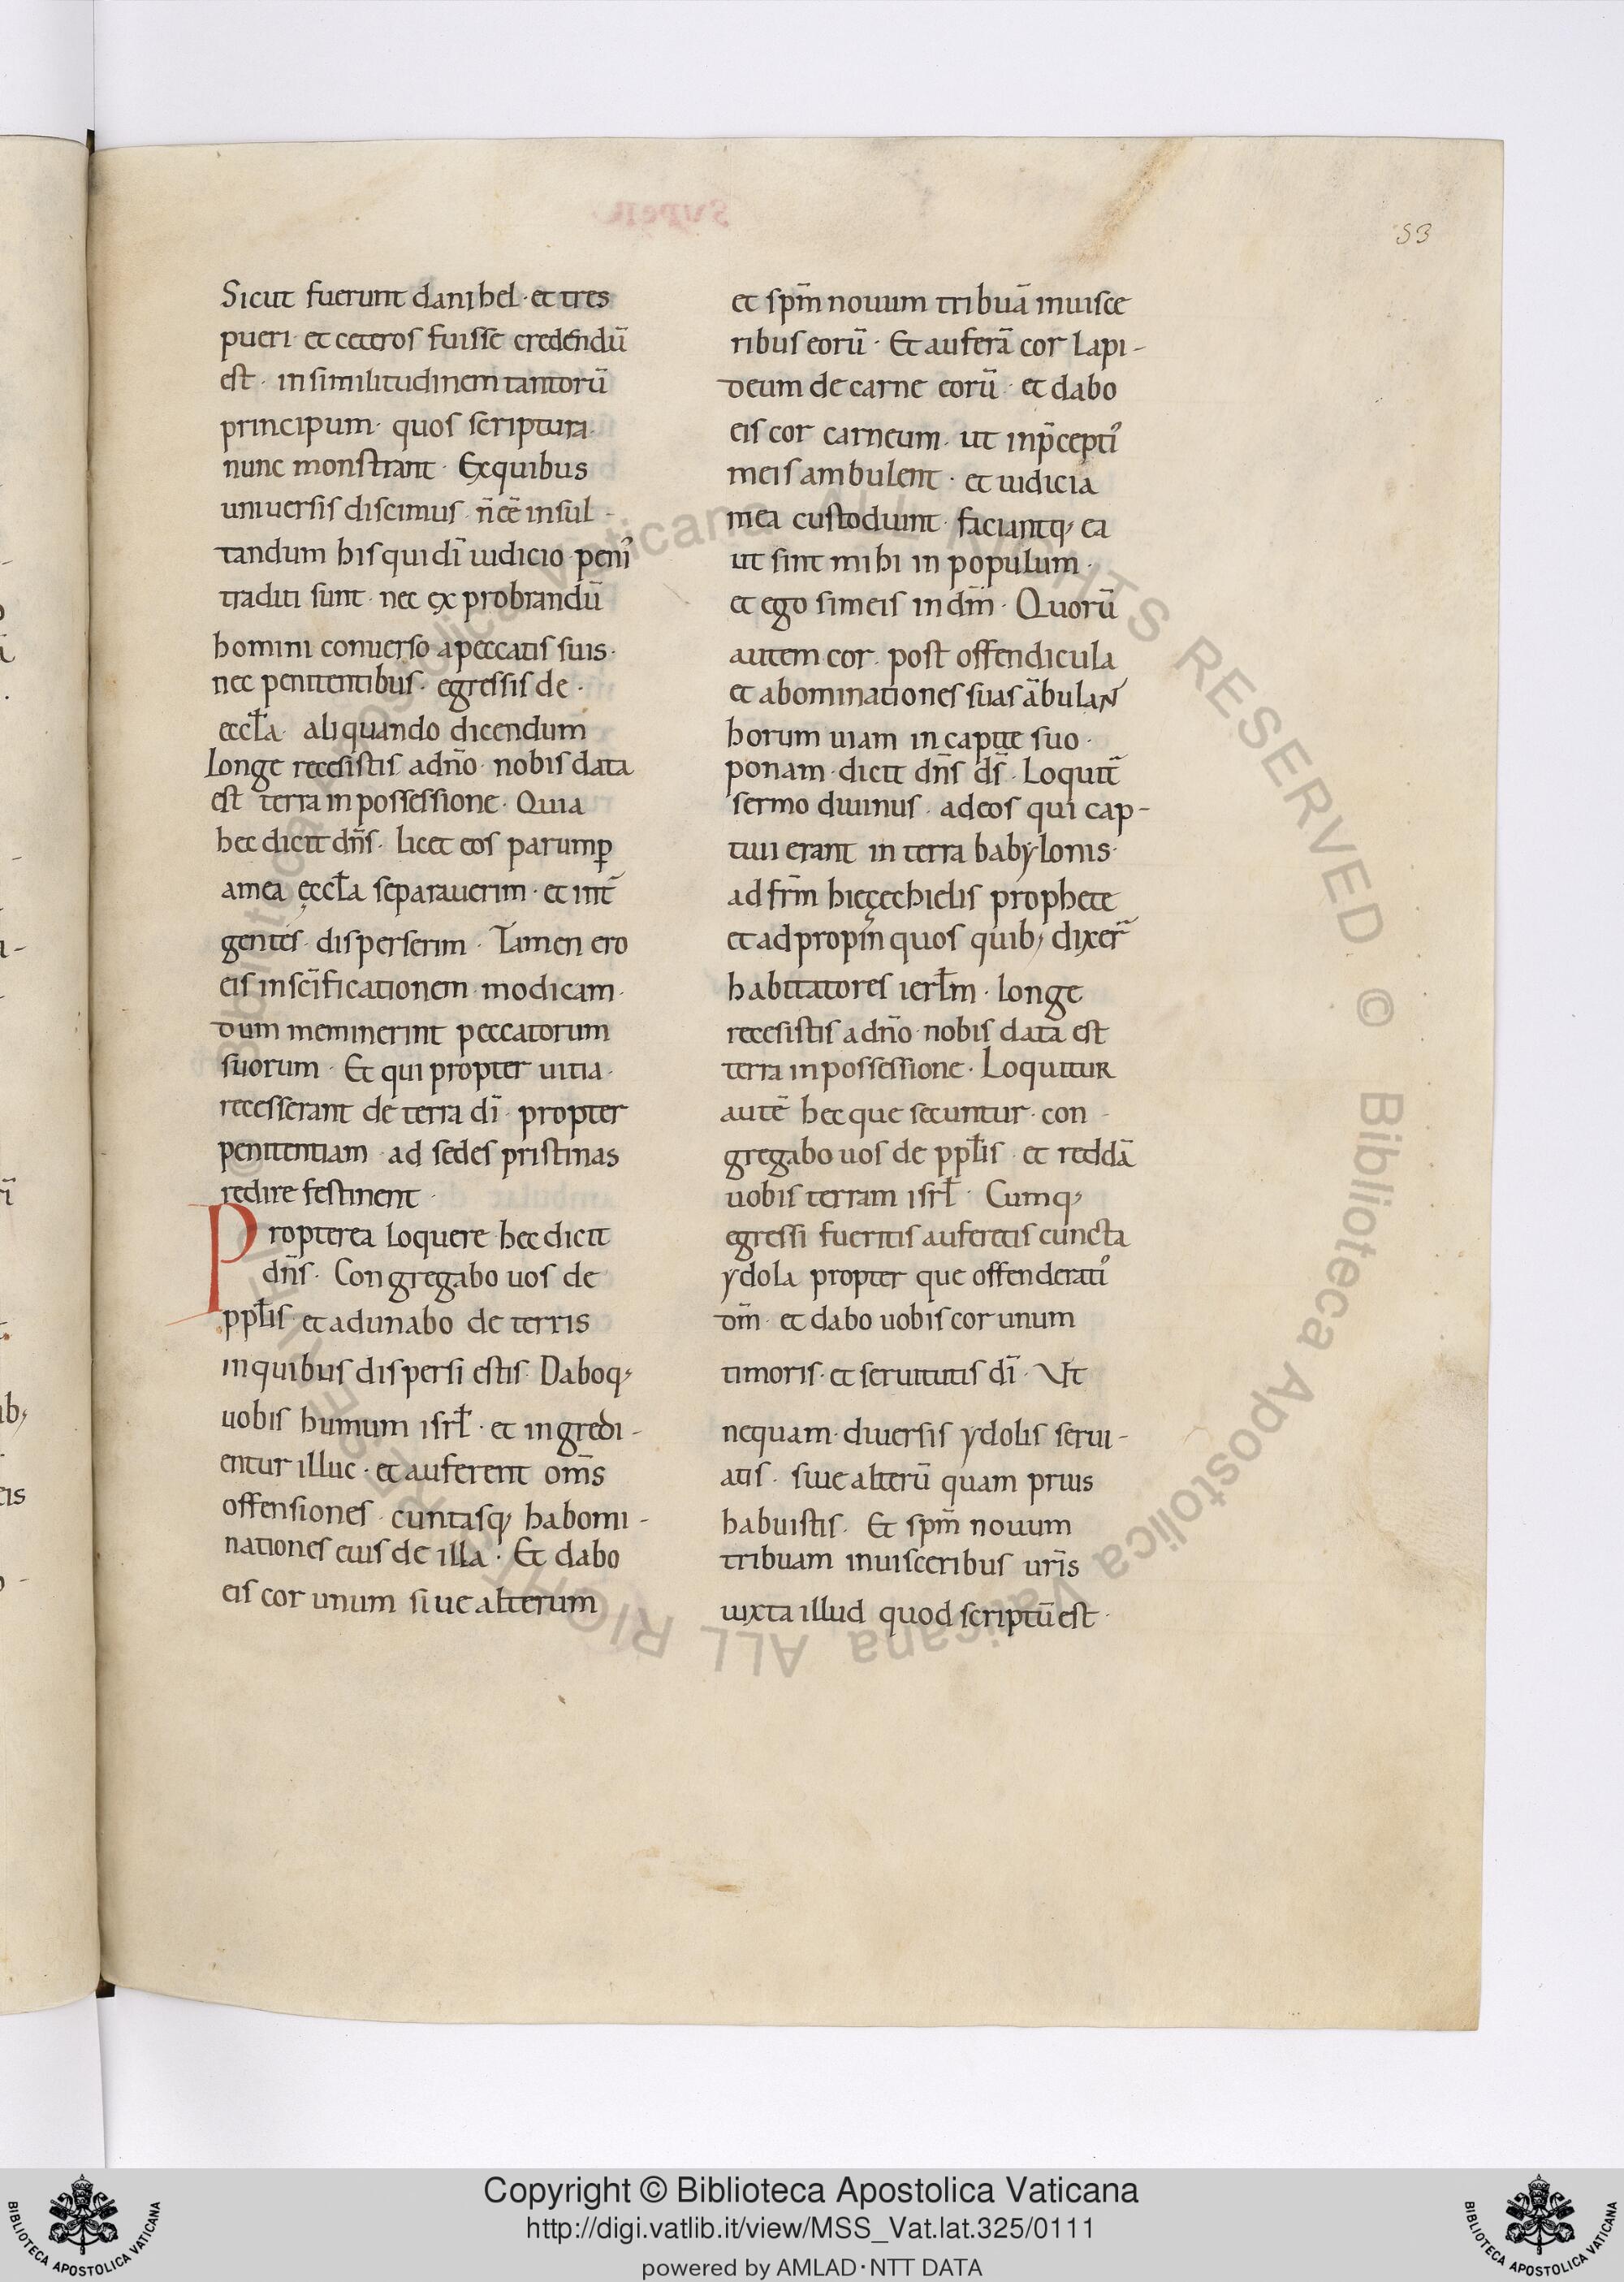 53
Sicut fuerunt danihel · et tres
pueri · et ceteros fuisse credendū
est · in similitudinem tantorū
principum · quos scriptura
nunc monstrant · Exquibus
uniuersis discimus · n̄ cē̄ insul-
tandum his qui dī iudicio peni᾽
traditi sunt · nec ęx probrandū
homini conuerso apeccatis suis ·
nec penitentibus · egressis de ·
eccl̄a · aliquando dicendum
longe recesistis adn̄o · nobis data
est terra in possessione · Quia
hec dicit dn̄s · licet eos parump̄
amea ęccl̄a separauerim · et int̄
gentes · disperserim · Tamen ero
eis insc̄ificationem modicam ·
dum meminerint peccatorum
suorum · Et qui propter uitia ·
recesserant de terra dī · propter
penitentiam · ad sedes pristinas
redire festinent ·
Propterea loquere hec dicit
dn̄s · Congregabo uos de
ppl̄is et adunabo de terris
inquibus dispersi estis · Daboq;
uobis humum isrl̄ · et ingredi-
entur illuc · et auferent om̄s
offensiones · cuntasq; habomi-
nationes eius de illa · Et dabo
eis cor unum siue alterum
et sp̄m nouum tribuā inuisce
ribus eorū · Et auferā cor lapi-
deum de carne eorū · et dabo
eis cor carneum · ut inp̄cepti᾽
meis ambulent · et iudicia
mea custodiuint · faciantq; ea
ut sint mihi in populum ·
et ego sim eis in dm̄ · Quorū
autem cor · post offendicula
et abominationes suas ābulaɴ̄
horum uiam in capite suo ·
ponam · dicit dn̄s ds̄ · Loquit̄
sermo diuinus · adeos qui cap-
tiui erant in terra babylonis ·
ad frm̄ hieçechielis prophete
et ad propin̄quos quib; dixer̄
habitatores ierl̄m · longe
recesistis adn̄o · nobis data est
terra inpossessione · Loquitur
autē hec que secuntur · con-
gregabo uos de ppl̄is · et reddā
uobis terram isrl̄ · Cumq;
egressi fueritis auferetis cuncta
ydola propter que offenderati᾽
dm̄ · et dabo uobis cor unum
timoris · et seruitutis dī · Ut
nequam · diuersis ydolis serui-
atis · siue alterū quam prius
habuistis · Et sp̄m nouum
tribuam inuisceribus uris̄
iuxta illud quod scriptū est ·
© Biblioteca Apostolica Vaticana ALL RIGHTS RESERVED © Biblioteca Apostolica Vaticana ALL RIGHTS RESERVED
BIBLIOTECA APOSTOLICA VATICANA
Copyright © Biblioteca Apostolica Vaticana
http://digi.vatlib.it/view/MSS_Vat.lat.325/0111
powered by AMLAD·NTT DATA
BIBLIOTECA APOSTOLICA VATICANA